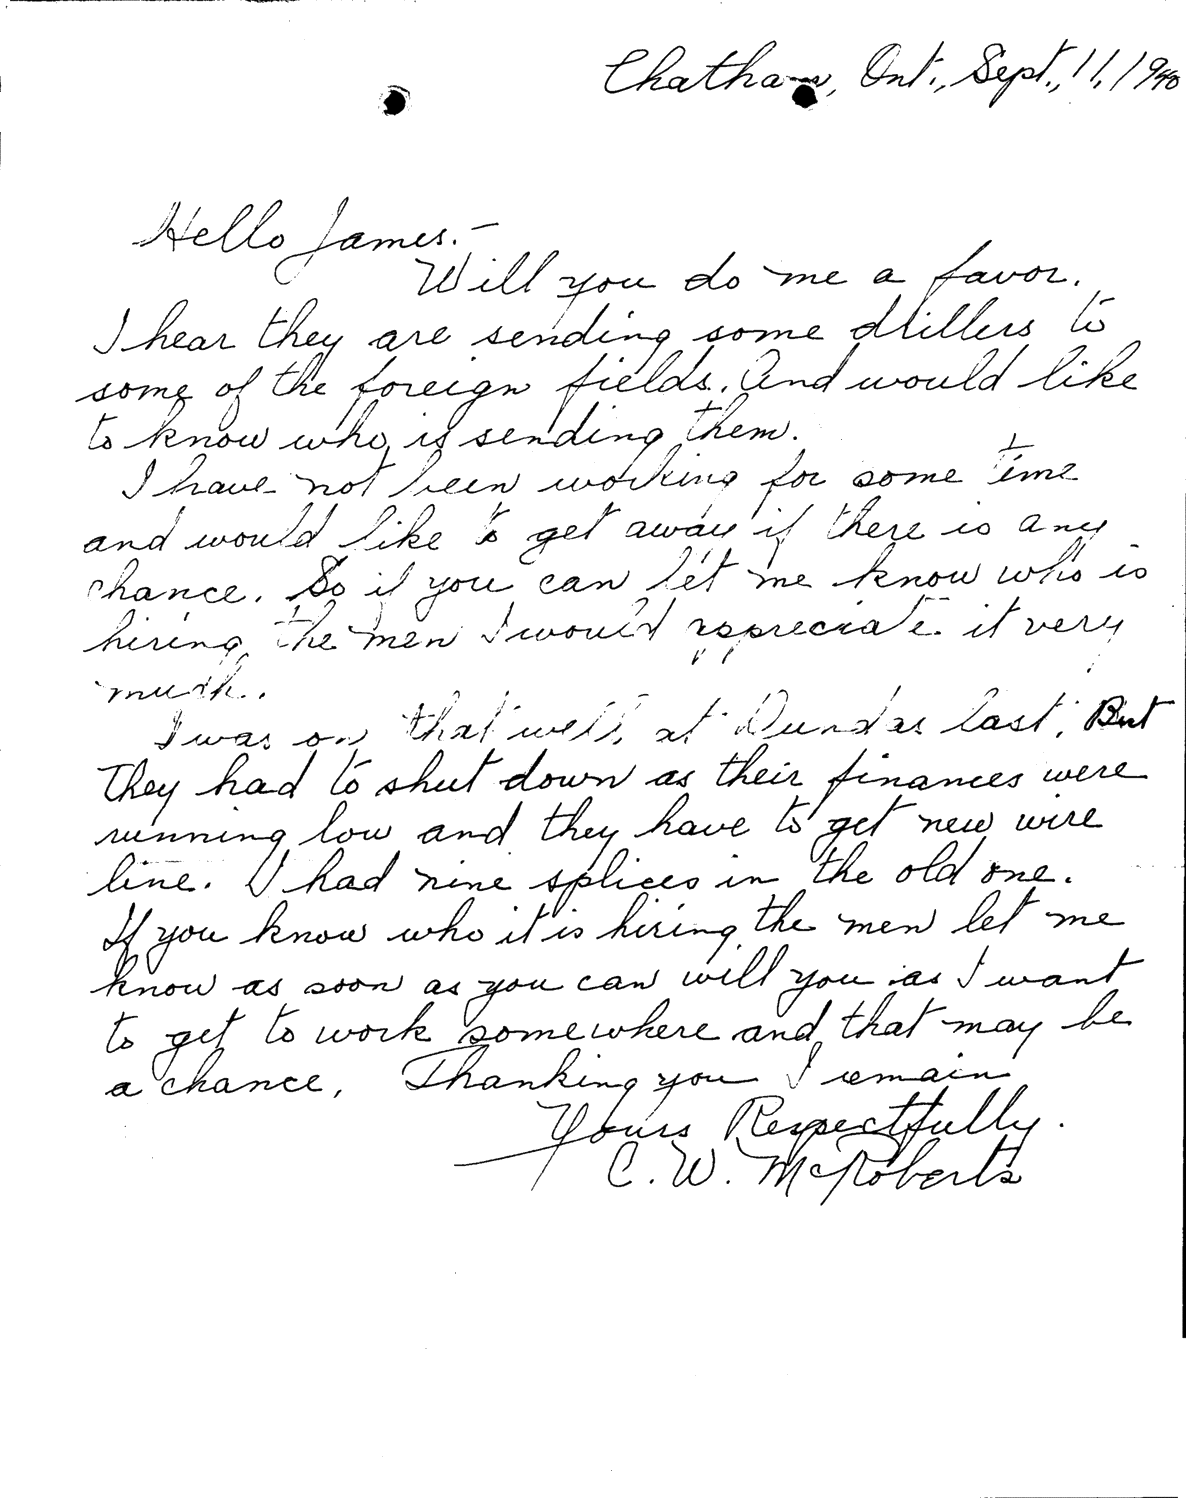 Chatham, Ont., Sept., 11, 1940
Hello James.—
Will you do me a favor.
I hear they are sending some drillers to
some of the foreign fields. And would like
to know who is sending them.
I have not been working for some time
and would like to get away if there is any
chance. So if you can let me know who is
hiring the men I would appreciate it very
much.
I was on that well at Dundas last. But
They had to shut down as their finances were
running low and they have to get new wire
line. I had nine splices in the old one.
If you know who it is hiring the men let me
know as soon as you can will you as I want
to get to work somewhere and that may be
a chance. Thanking you I remain
Yours Respectfully.
C. W. McRoberts